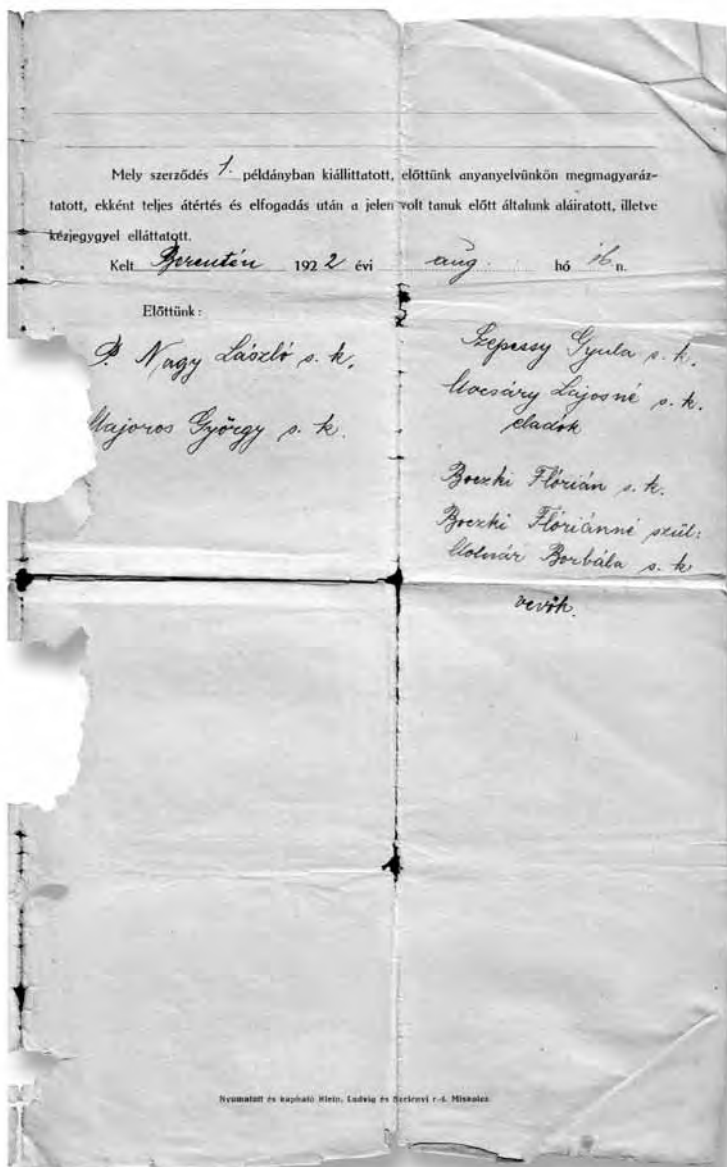 Mely szerződés 1. példányban kiállittatott, előttünk anyanyelvünkön megmagyaráz-
tatott, ekként teljes átértés és elfogadás után a jelen volt tanuk előtt általunk aláiratott, illetve
kézjegygyel elláttatott.
Kelt Berentén 1922 évi aug. hó 16 n.
Előttünk:
P. Nagy László s. k.
Majoros György s. k.
Szepessy Gyula s. k.
Mocsáry Lajosné s. k.
eladók
Boczki Flórián s. k.
Boczki Flóriánné szül:
Molnár Borbála s. k
vevők.
Nyomatott és kapható Klein, Ludvig és Szelényi r.-t. Miskolcz